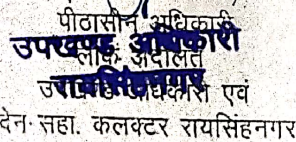 पीठासीन अधिकारी
उपखण्ड अधिकारी
लोक अदालत
रायसिंहनगर
एवं
देन. सहा. कलक्टर रायसिंहनगर